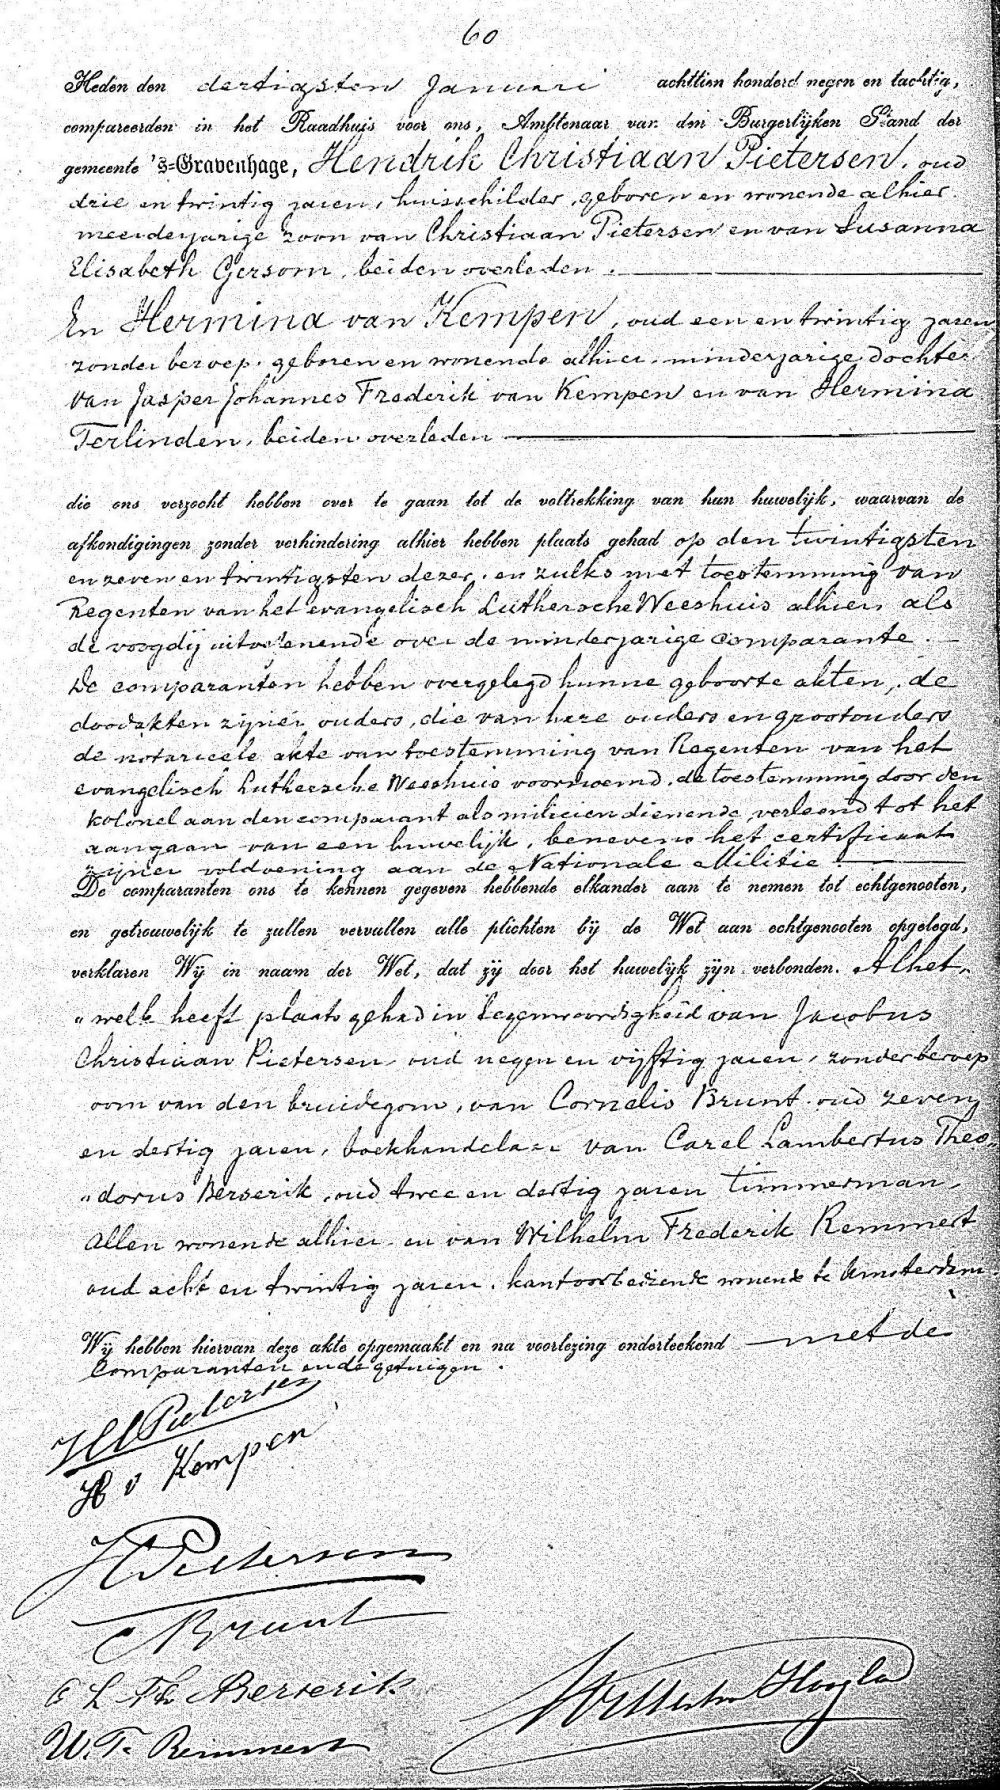 60
Heden den dertigsten Januari achttien honderd negen en tachtig,
compareerden in het Raadhuis voor ons, Ambtenaar van den Burgerlijken Stand der
gemeente 's-Gravenhage, Hendrik Christiaan Pietersen, oud
drie en twintig jaren, huisschilder, geboren en wonende alhier
meerderjarige zoon van Christiaan Pietersen en van Susanna
Elisabeth Gersom, beiden overleden.
En Hermina van Kempen, oud een en twintig jaren
zonder beroep, geboren en wonende alhier, minderjarige dochter
van Jasper Johannes Frederik van Kempen en van Hermina
Terlinden, beiden overleden
die ons verzocht hebben over te gaan tot de voltrekking van hun huwelijk, waarvan de
afkondigingen zonder verhindering alhier hebben plaats gehad op den twintigsten
en zeven en twintigsten dezer, en zulks met toestemming van
Regenten van het evangelisch Luthersche Weeshuis alhier, als
de voogdij uitoefenende over de minderjarige comparante.
De comparanten hebben overgelegd hunne geboorte akten, de
doodakten zijner ouders, die van hare ouders en grootouders
de notarieele akte van toestemming van Regenten van het
evangelisch Luthersche Weeshuis voornoemd, de toestemming door den
kolonel aan den comparant als milicien dienende, verleend tot het
aangaan van een huwelijk, benevens het certificaat
zijner voldoening aan de Nationale Militie.
De comparanten ons te kennen gegeven hebbende elkander aan te nemen tot echtgenooten,
en getrouwelijk te zullen vervullen alle plichten bij de Wet aan echtgenooten opgelegd,
verklaren Wij in naam der Wet, dat zij door het huwelijk zijn verbonden. Alhet-
"welk heeft plaats gehad in tegenwoordigheid van Jacobus
Christiaan Pietersen oud negen en vijftig jaren, zonder beroep
oom van den bruidegom, van Cornelis Brunt oud zeven
en dertig jaren, boekhandelaar van Carel Lambertus Theo-
"dorus Berserik, oud twee en dertig jaren timmerman,
allen wonende alhier en van Wilhelm Frederik Remmert
oud acht en twintig jaren, kantoorbediende wonende te Amsterdam.
Wij hebben hiervan deze akte opgemaakt en na voorlezing onderteekend met de
Comparanten en de getuigen.
H C Pietersen
H v Kempen
J C Pietersen
C Brunt
C L Th Berserik
W. F. Remmert